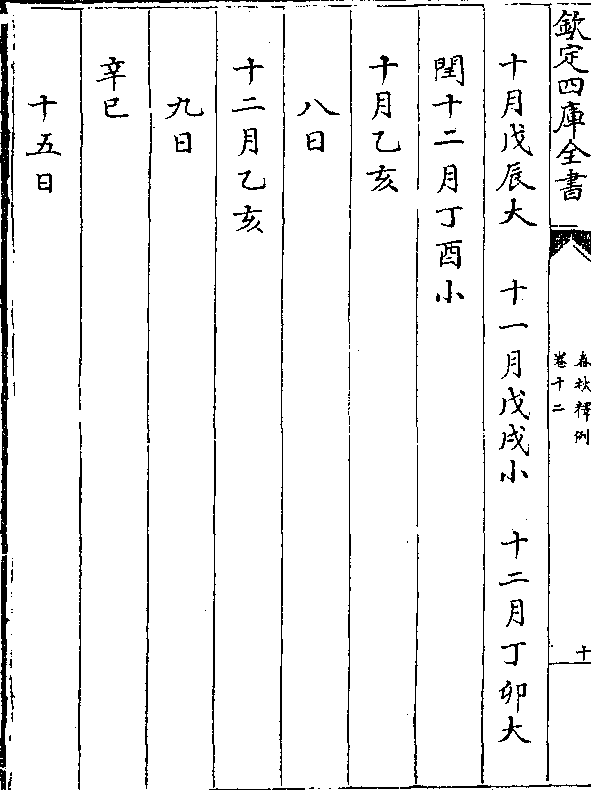 欽定四庫全書
春秋釋例
卷十二
十
十月戊辰大　十一月戊戌小　十二月丁卯大
閏十二月丁酉小
十月乙亥
八日
十二月乙亥
九日
辛巳
十五日